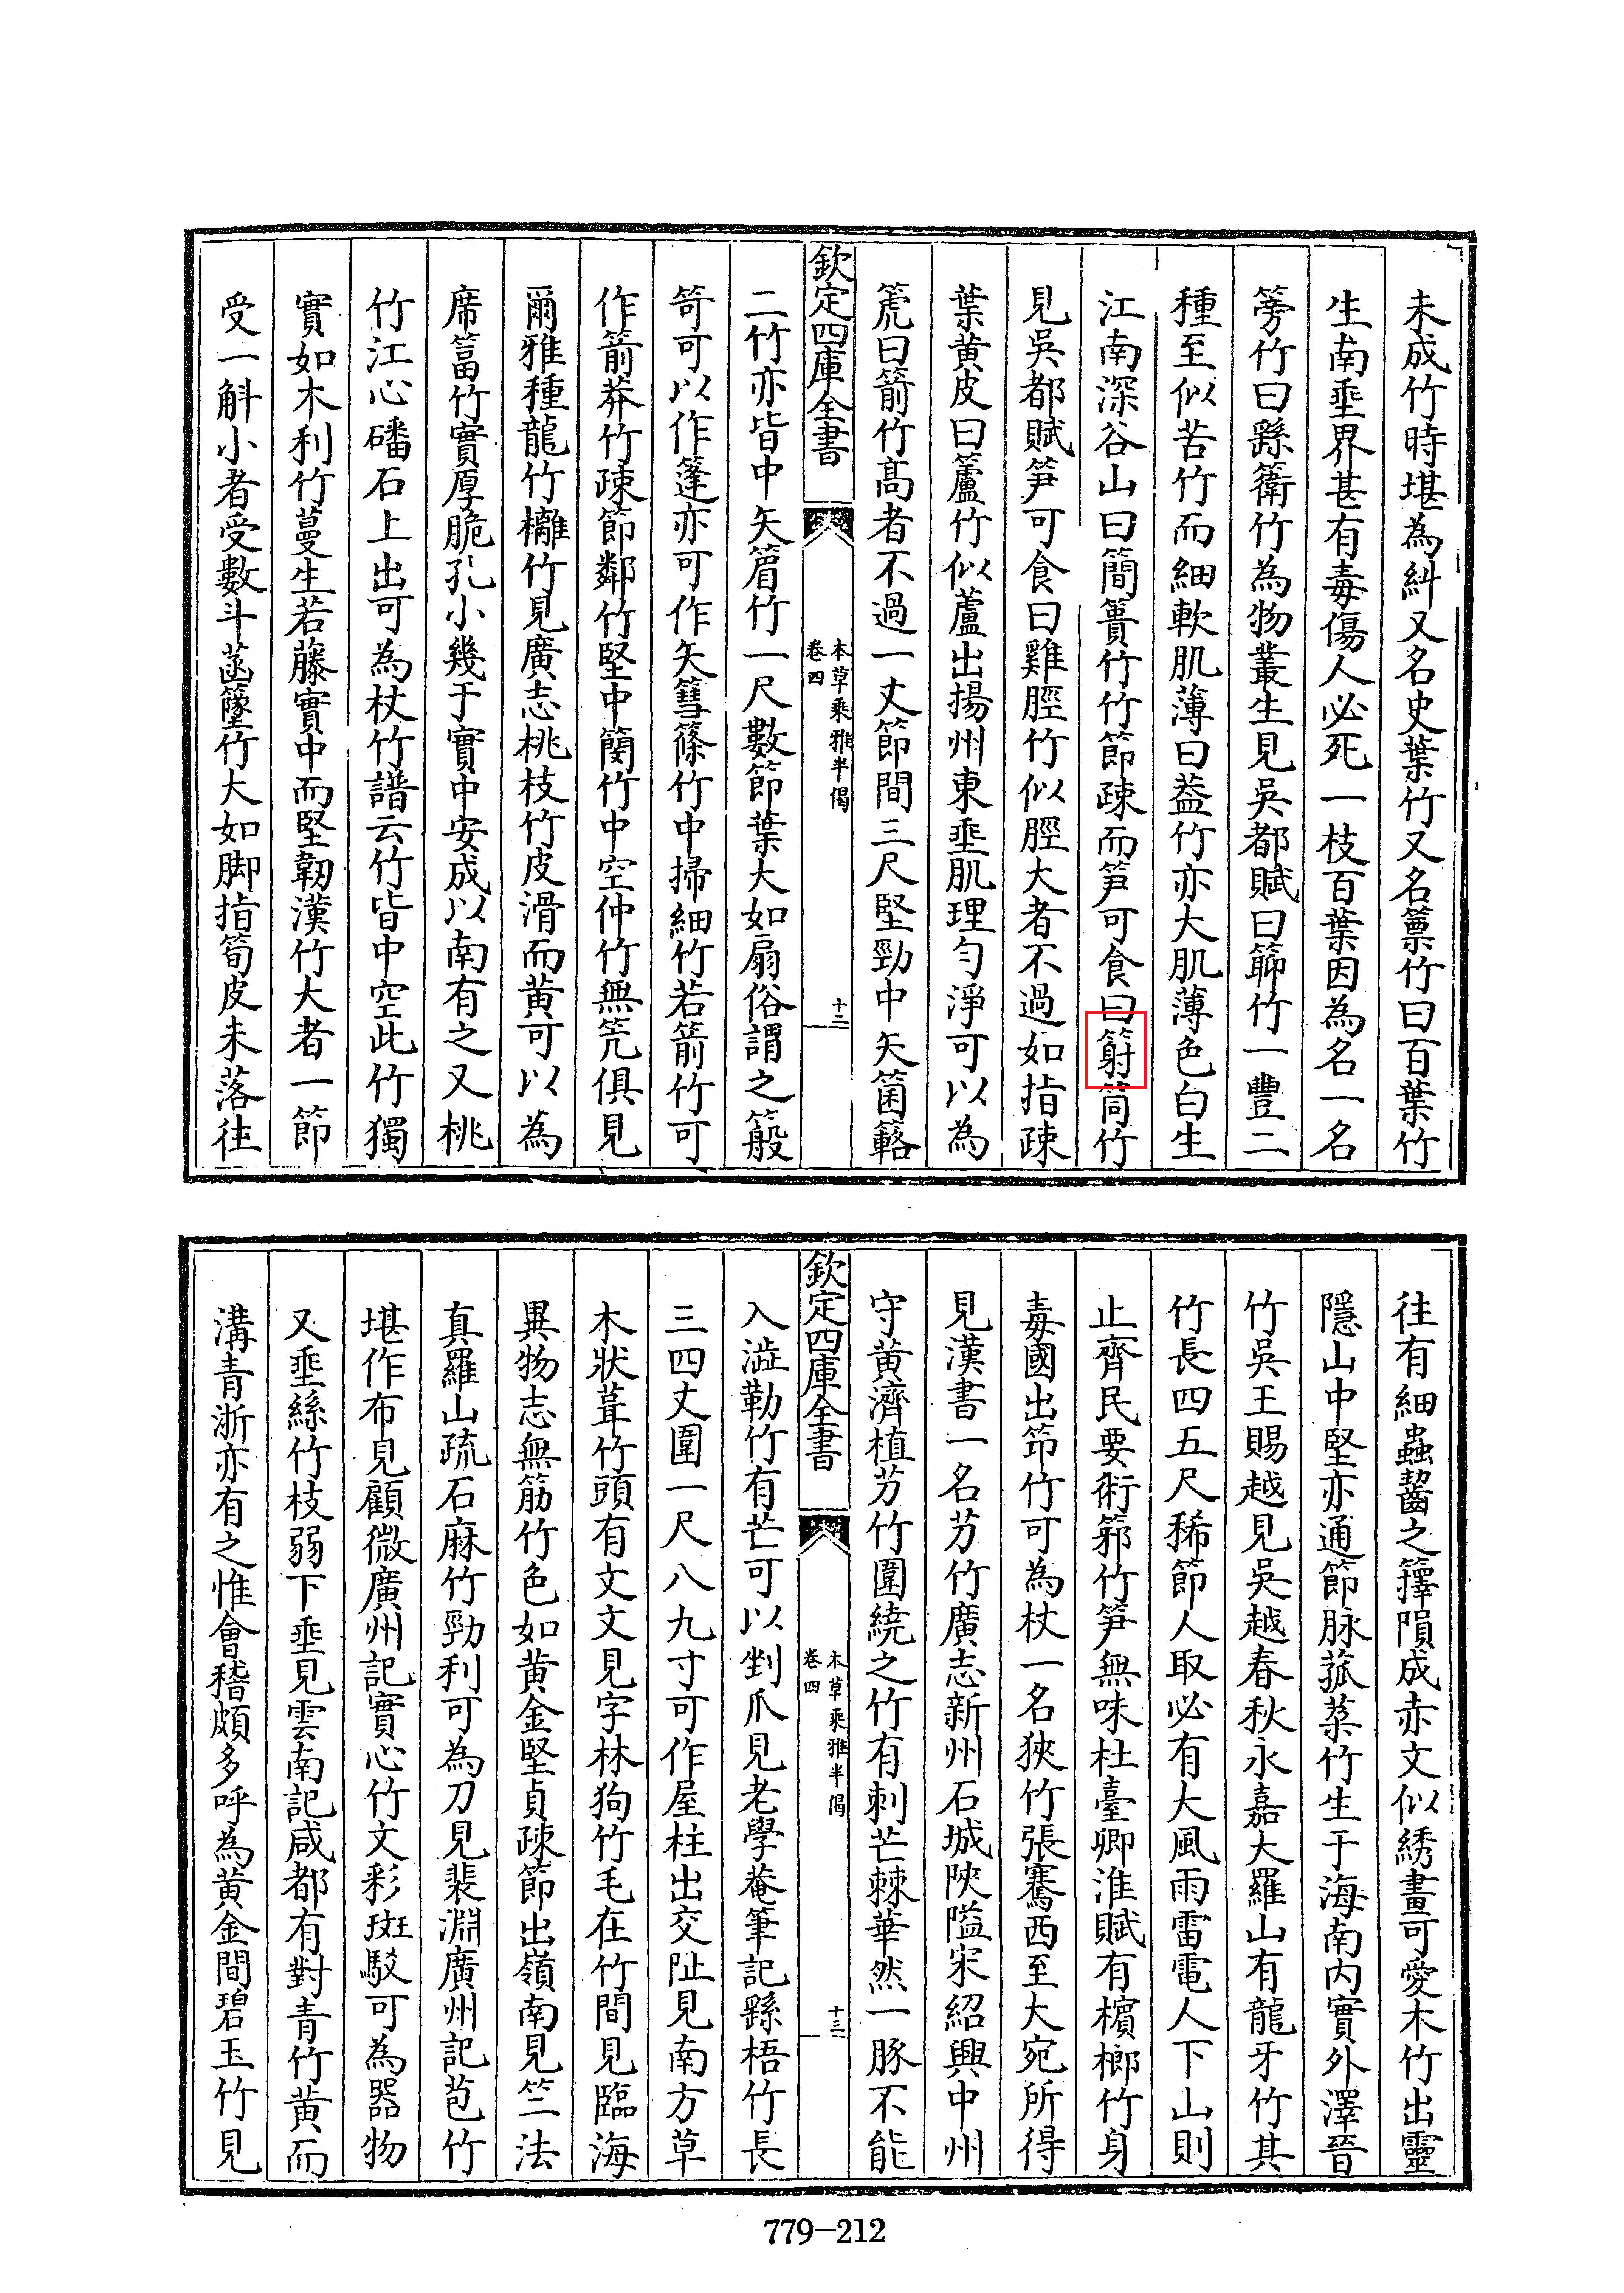 未成竹時堪為糾又名史葉竹又名篻竹曰百葉竹
生南垂界甚有毒傷人必死一枝百葉因為名一名
篣竹曰繇䘙竹為物叢生見吳都賦曰䈁竹一豐二
種至似苦竹而細軟肌薄曰葢竹亦大肌薄色白生
江南深谷山曰簡簣竹竹節疎而笋可食曰䠶筒竹
見吳都賦笋可食曰雞脛竹似脛大者不過如指疎
葉黄皮曰簬竹似蘆出揚州東垂肌理勻淨可以為
箎曰箭竹髙者不過一丈節間三尺堅勁中矢箘簵
欽定四庫全書
本草乘雅半偈
卷四
十二
二竹亦皆中矢䈞竹一尺數節葉大如扇俗謂之䈲
笴可以作篷亦可作矢篲篠竹中掃細竹若箭竹可
作箭莽竹疎節鄰竹堅中䕞竹中空仲竹無笐俱見
爾雅種龍竹欟竹見廣志桃枝竹皮滑而黄可以為
席篔竹實厚脆孔小幾于實中安成以南有之又桃
竹江心磻石上出可為杖竹譜云竹皆中空此竹獨
實如木利竹蔓生若藤實中而堅韌漢竹大者一節
受一斛小者受數斗菡䉌竹大如脚指筍皮未落往
往有細蟲齧之籜隕成赤文似綉畫可愛木竹出靈
隱山中堅亦通節脉菰菜竹生于海南内實外澤晉
竹吳王賜越見吳越春秋永嘉大羅山有龍牙竹其
竹長四五尺稀節人取必有大風雨雷電人下山則
止齊民要術䈒竹笋無味杜臺卿淮賦有檳榔竹身
毒國出笻竹可為杖一名狹竹張騫西至大宛所得
見漢書一名芀竹廣志新州石城陝隘宋紹興中州
守黄濟植芀竹圍繞之竹有刺芒棘華然一豚不能
欽定四庫全書
本草乘雅半偈
卷四
十三
入澁勒竹有芒可以剉爪見老學菴筆記繇梧竹長
三四丈圍一尺八九寸可作屋柱出交阯見南方草
木狀葺竹頭有文文見字林狗竹毛在竹間見臨海
異物志無筋竹色如黄金堅貞疎節出嶺南見竺法
真羅山疏石麻竹勁利可為刀見裴淵廣州記苞竹
堪作布見顧微廣州記實心竹文彩斑駁可為器物
又垂絲竹枝弱下垂見雲南記咸都有對青竹黄而
溝青浙亦有之惟會稽頗多呼為黄金間碧玉竹見
779-212